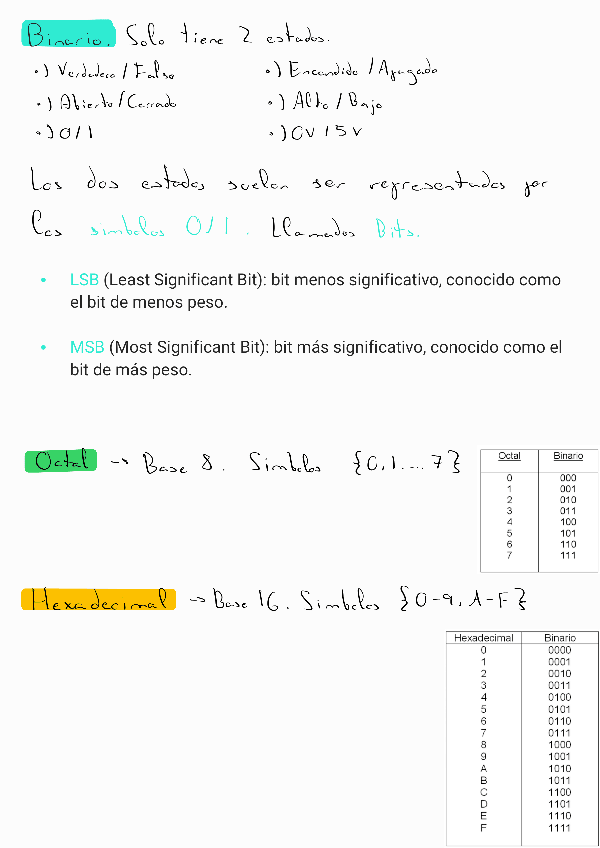 Binario. Solo tiene 2 estados.
·) Verdadero / Falso ·) Encendido / Apagado
·) Abierto / Cerrado ·) Alto / Bajo
·) 0 / 1 ·) 0V / 5V
Los dos estados suelen ser representados por
los simbolos 0/1. Llamados Bits.
• LSB (Least Significant Bit): bit menos significativo, conocido como
el bit de menos peso.
• MSB (Most Significant Bit): bit más significativo, conocido como el
bit de más peso.
Octal → Base 8. Simbolos {0,1....7}
Octal Binario
0 000
1 001
2 010
3 011
4 100
5 101
6 110
7 111
Hexadecimal → Base 16. Simbolos {0-9, A-F}
Hexadecimal Binario
0 0000
1 0001
2 0010
3 0011
4 0100
5 0101
6 0110
7 0111
8 1000
9 1001
A 1010
B 1011
C 1100
D 1101
E 1110
F 1111